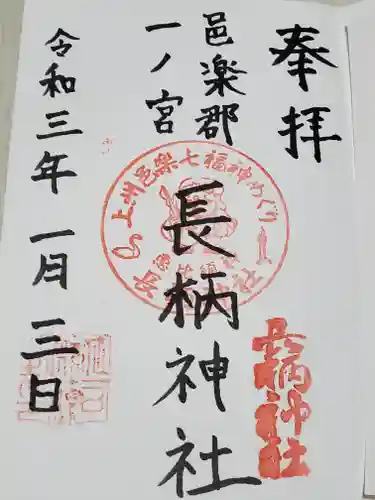 奉拝
邑楽郡
一ノ宮
長柄神社
令和三年一月三日
上州邑樂七福神めぐり
長柄神社